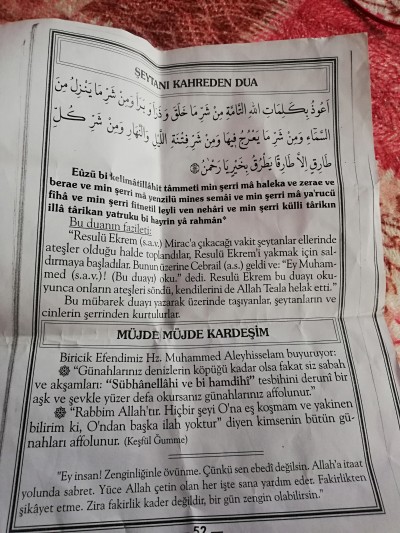 ŞEYTANI KAHREDEN DUA
اَعُوذُ بِكَلِمَاتِ اللّٰهِ التَّامَّةِ مِنْ شَرِّ مَا خَلَقَ وَذَرَأَ وَبَرَأَ وَمِنْ شَرِّ مَا يَنْزِلُ مِنَ
السَّمَاءِ وَمِنْ شَرِّ مَا يَعْرُجُ فِيهَا وَمِنْ شَرِّ فِتْنَةِ اللَّيْلِ وَالنَّهَارِ وَمِنْ شَرِّ كُلِّ
طَارِقٍ اِلاَّ طَارِقًا يَطْرُقُ بِخَيْرٍ يَا رَحْمٰنُ
Eûzü bi kelimâtillâhit tâmmeti min şerri mâ haleka ve zerae ve
berae ve min şerri mâ yenzilü mines semâi ve min şerri mâ ya'rucü
fihâ ve min şerri fitnetil leyli ven nehâri ve min şerri külli târikın
illâ târikan yatruku bi hayrin yâ rahmân*
Bu duanın fazileti:
"Resulü Ekrem (s.a.v.) Mirac'a çıkacağı vakit şeytanlar ellerinde
ateşler olduğu halde toplandılar, Resulü Ekrem'i yakmak için sal-
dırmaya başladılar. Bunun üzerine Cebrail (a.s.) geldi ve: "Ey Muham-
med (s.a.v.)! (Bu duayı) oku." dedi. Resulü Ekrem bu duayı oku-
yunca onların ateşleri söndü, kendilerini de Allah Teala helak etti."
Bu mübarek duayı yazarak üzerinde taşıyanlar, şeytanların ve
cinlerin şerrinden kurtulurlar.
MÜJDE MÜJDE KARDEŞİM
Biricik Efendimiz Hz. Muhammed Aleyhisselam buyuruyor:
"Günahlarınız denizlerin köpüğü kadar olsa fakat siz sabah
ve akşamları: "Sübhânellâhi ve bi hamdihî" tesbihini derunî bir
aşk ve şevkle yüzer defa okursanız günahlarınız affolunur."
"Rabbim Allah'tır. Hiçbir şeyi O'na eş koşmam ve yakinen
bilirim ki, O'ndan başka ilah yoktur" diyen kimsenin bütün gü-
nahları affolunur. (Keşfül Ğumme)
"Ey insan! Zenginliğinle övünme. Çünkü sen ebedî değilsin. Allah'a itaat
yolunda sabret. Yüce Allah çetin olan her işte sana yardım eder. Fakirlikten
şikâyet etme. Zira fakirlik kader değildir, bir gün zengin olabilirsin."
— 52 —